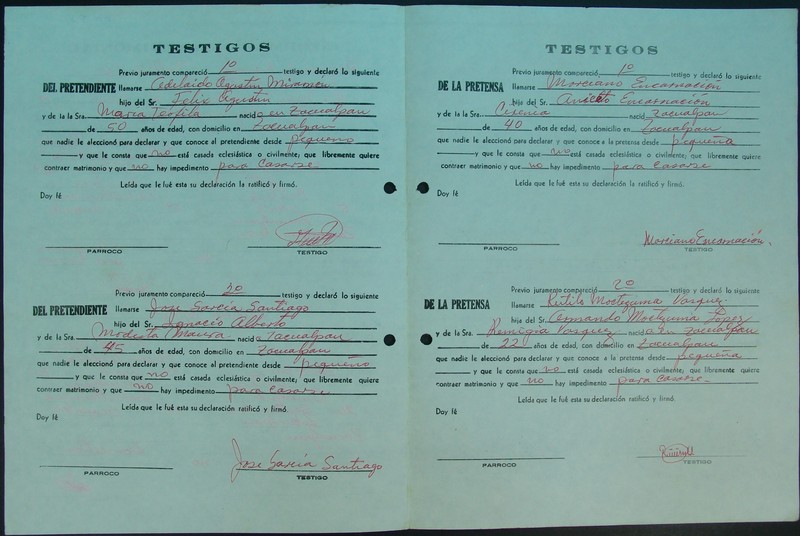 TESTIGOS
Previo juramento compareció 1º testigo y declaró lo siguiente
DEL PRETENDIENTE llamarse Adelaido Agustín
hijo del Sr. Felix Agustín
y de la la Sra. María Teofila nacido en Zacualpan
de 50 años de edad, con domicilio en Zacualpan
que nadie le aleccionó para declarar y que conoce al pretendiente desde pequeño
y que le consta que no está casada eclesiástica o civilmente; que libremente quiere
contraer matrimonio y que no hay impedimento para casarse
Leída que le fué esta su declaración la ratificó y firmó.
Doy fé
PARROCO TESTIGO
Previo juramento compareció 2º testigo y declaró lo siguiente
DEL PRETENDIENTE llamarse Jose García Santiago
hijo del Sr. Ignacio Alberto
y de la Sra. Modesta Maura nacido a Zacualpan
de 45 años de edad, con domicilio en Zacualpan
que nadie le aleccionó para declarar y que conoce al pretendiente desde pequeño
y que le consta que no está casada eclesiástica o civilmente; que libremente quiere
contraer matrimonio y que no hay impedimento para casarse
Leída que le fué esta su declaración la ratificó y firmó.
Doy fé
Jose García Santiago
PARROCO TESTIGO
TESTIGOS
Previo juramento compareció 1º testigo y declaró lo siguiente
DE LA PRETENSA llamarse Morciano Encarnación
hijo del Sr. Aniceto Encarnación
y de la Sra. nacido Zacualpan
de 40 años de edad, con domicilio en Zacualpan
que nadie le aleccionó para declarar y que conoce a la pretensa desde pequeña
y que le consta que no está casada eclesiástica o civilmente; que libremente quiere
contraer matrimonio y que no hay impedimento para casarse
Leída que le fué esta su declaración la ratificó y firmó.
Doy fé
Morciano Encarnación.
PARROCO TESTIGO
Previo juramento compareció 2º testigo y declaró lo siguiente
DE LA PRETENSA llamarse Rutilo Moctezuma Vasquez
hijo del Sr. Armando Moctezuma Lopez
y de la Sra. Remigia Vasquez nacido en Zacualpan
de 22 años de edad, con domicilio en Zacualpan
que nadie le aleccionó para declarar y que conoce a la pretensa desde pequeña
y que le consta que no está casada eclesiástica o civilmente; que libremente quiere
contraer matrimonio y que no hay impedimento para casarse
Leída que le fué esta su declaración la ratificó y firmó.
Doy fé
PARROCO TESTIGO